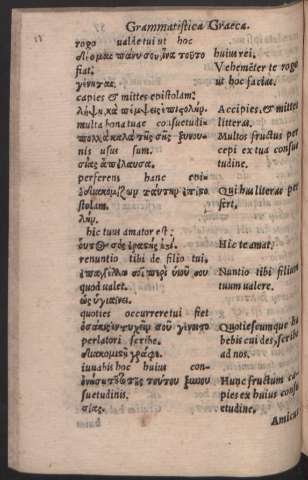 Grammatistica Graeca.
rogo ualde tui ut hoc
δέομαι πάνυ σου, ἵνα τοῦτο huius rei.
fiat. Vehemẽter te rogo
γένηται. ut hoc facias.
capies & mittes epistolam:
λήψῃ, καὶ πέμψεις ἐπιστολήν. Accipies, & mittes
multa bona tuae consuetudi- litteras.
πολλὰ καλὰ τῆς σῆς συνου- Multos fructus per
nis usus sum. cepi ex tua consue
σίας ἀπέλαυσα. tudine.
perferens hanc epi-
ὁ διακομίζων ταύτην ἐπιστο Qui has literas per
stolam. fert.
λήν.
hic tuus amator est;
οὗτος σὸς ἐραστής ἐστι. Hic te amat.
renuntio tibi de filio tui,
ἀπαγγέλλω σοι περὶ υἱοῦ σου Nuntio tibi filium
quod ualet. tuum ualere.
ὡς ὑγιαίνει.
quoties occurreretui fiet
ὁσάκις ἐντυχεῖν σου γένοιτο Quotiescunque ha
perlatori scribe. bebis cui des, scribe
διακομιστῇ γράφε. ad nos.
iuuabis hoc huius con-
ὀνήσῃ τοῦτο τῆς τούτου ξυνου Hunc fructum ca-
suetudinis. pies ex huius consu
σίας. etudine.
Amicus